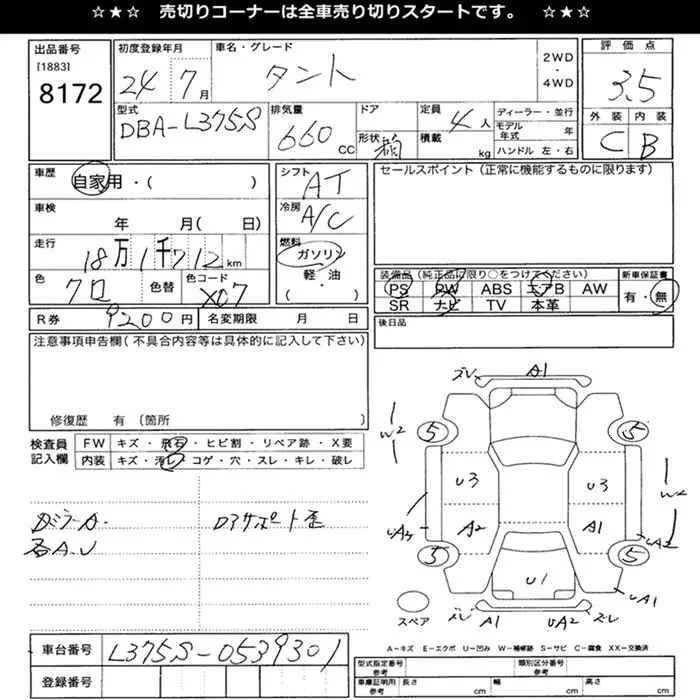 ☆★☆ 売切りコーナーは全車売り切りスタートです。 ☆★☆
出品番号 [1883] 8172
初度登録年月 24 7月
車名・グレード タント
2WD・4WD
評価点 3.5
外装 C 内装 B
型式 DBA-L375S
排気量 660 CC
ドア 形状
定員 4人
積載 kg
ディーラー・並行
モデル年式 年
ハンドル 左・右
車歴 自家用・( )
シフト AT
セールスポイント(正常に機能するものに限ります)
車検 年 月( 日)
冷房 A/C
走行 18万1千712km
燃料 ガソリン 軽・油 (・ )
色 クロ 色替 色コード X07
装備品(純正品に限り○をつけてください)
PS PW ABS エアB AW
SR ナビ TV 本革
新車保証書 有・無
R券 9200円 名変期限 月 日
後日品
注意事項申告欄(不具合内容等は具体的に記入して下さい)
修復歴 有 〔箇所 〕
検査員記入欄
FW キズ・飛石・ヒビ割・リペア跡・X要
内装 キズ・汚レ・コゲ・穴・スレ・キレ・破レ
各A.U
ズレ A1
W2 5 5
U3 U3
W2
UA3 A2 A1 UA2
5 5
U1
UA1
スペア
ズレ A1 UA2 ズレ
A-キズ E-エクボ U-凹み W-補修跡 S-サビ C-腐食 XX-交換済
車台番号 L375S-0539301
登録番号
型式指定番号 参考 類別区分番号 参考
車庫証明用 参考 長さ cm 幅 cm 高さ cm